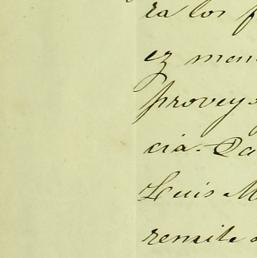 ra los f
ez men
provey
cia. Da
Luis M
remite